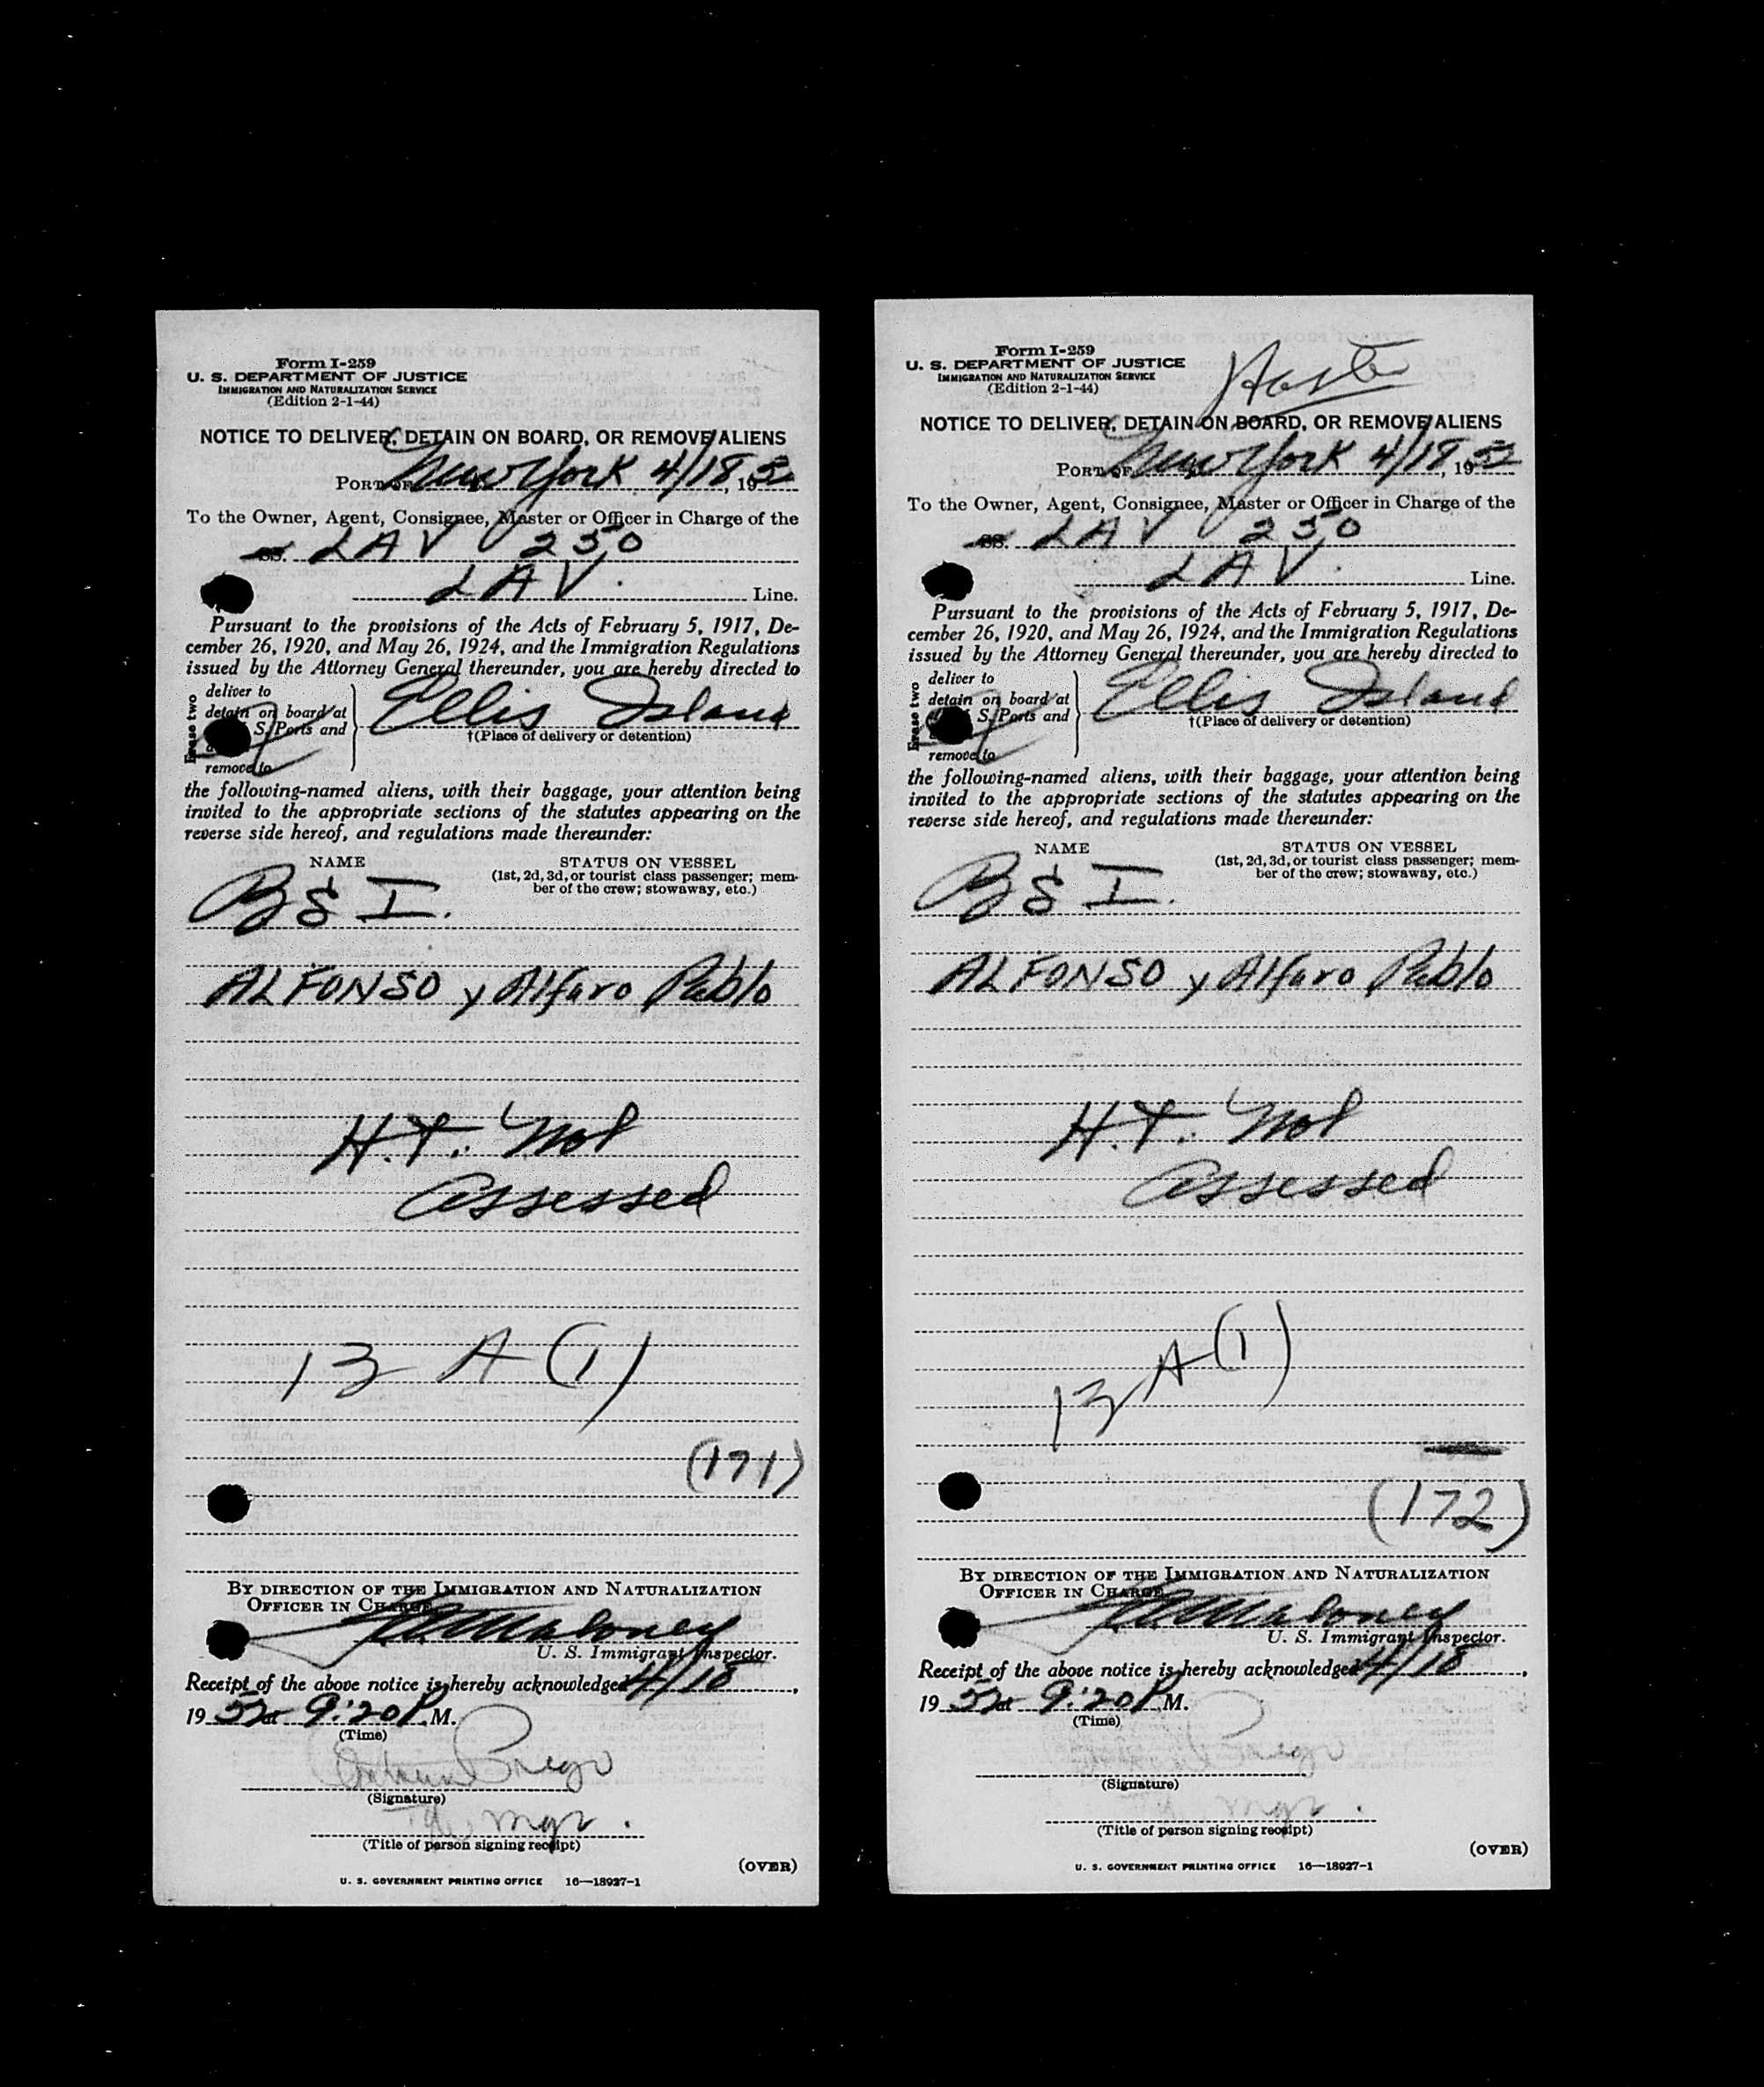 Form I-259
U. S. DEPARTMENT OF JUSTICE
IMMIGRATION AND NATURALIZATION SERVICE
(Edition 2-1-44)
NOTICE TO DELIVER, DETAIN ON BOARD, OR REMOVE ALIENS
PORT OF New York 4/18, 1952
To the Owner, Agent, Consignee, Master or Officer in Charge of the
SS. LAV 250
LAV. Line.
Pursuant to the provisions of the Acts of February 5, 1917, De-
cember 26, 1920, and May 26, 1924, and the Immigration Regulations
issued by the Attorney General thereunder, you are hereby directed to
Erase two
deliver to
detain on board at
S. Ports and
remove to
Ellis Island
†(Place of delivery or detention)
the following-named aliens, with their baggage, your attention being
invited to the appropriate sections of the statutes appearing on the
reverse side hereof, and regulations made thereunder:
NAME STATUS ON VESSEL
(1st, 2d, 3d, or tourist class passenger; mem-
ber of the crew; stowaway, etc.)
BSI.
ALFONSO y Alfaro Pablo
H.T. Not
assessed
13 A (1)
(171)
BY DIRECTION OF THE IMMIGRATION AND NATURALIZATION
OFFICER IN CHARGE
Maloney
U. S. Immigrant Inspector.
Receipt of the above notice is hereby acknowledged 4/18,
1952 at 9:20 P.M.
(Time)
(Signature)
Mgr.
(Title of person signing receipt)
(OVER)
U. S. GOVERNMENT PRINTING OFFICE 16—18927-1
Form I-259
U. S. DEPARTMENT OF JUSTICE
IMMIGRATION AND NATURALIZATION SERVICE
(Edition 2-1-44)
NOTICE TO DELIVER, DETAIN ON BOARD, OR REMOVE ALIENS
PORT OF New York 4/18, 1952
To the Owner, Agent, Consignee, Master or Officer in Charge of the
SS. LAV 250
LAV. Line.
Pursuant to the provisions of the Acts of February 5, 1917, De-
cember 26, 1920, and May 26, 1924, and the Immigration Regulations
issued by the Attorney General thereunder, you are hereby directed to
Erase two
deliver to
detain on board at
S. Ports and
remove to
Ellis Island
†(Place of delivery or detention)
the following-named aliens, with their baggage, your attention being
invited to the appropriate sections of the statutes appearing on the
reverse side hereof, and regulations made thereunder:
NAME STATUS ON VESSEL
(1st, 2d, 3d, or tourist class passenger; mem-
ber of the crew; stowaway, etc.)
BSI.
ALFONSO y Alfaro Pablo
H.T. Not
assessed
13 A (1)
(172)
BY DIRECTION OF THE IMMIGRATION AND NATURALIZATION
OFFICER IN CHARGE
Maloney
U. S. Immigrant Inspector.
Receipt of the above notice is hereby acknowledged 4/18,
1952 at 9:20 P.M.
(Time)
(Signature)
Mgr.
(Title of person signing receipt)
(OVER)
U. S. GOVERNMENT PRINTING OFFICE 16—18927-1